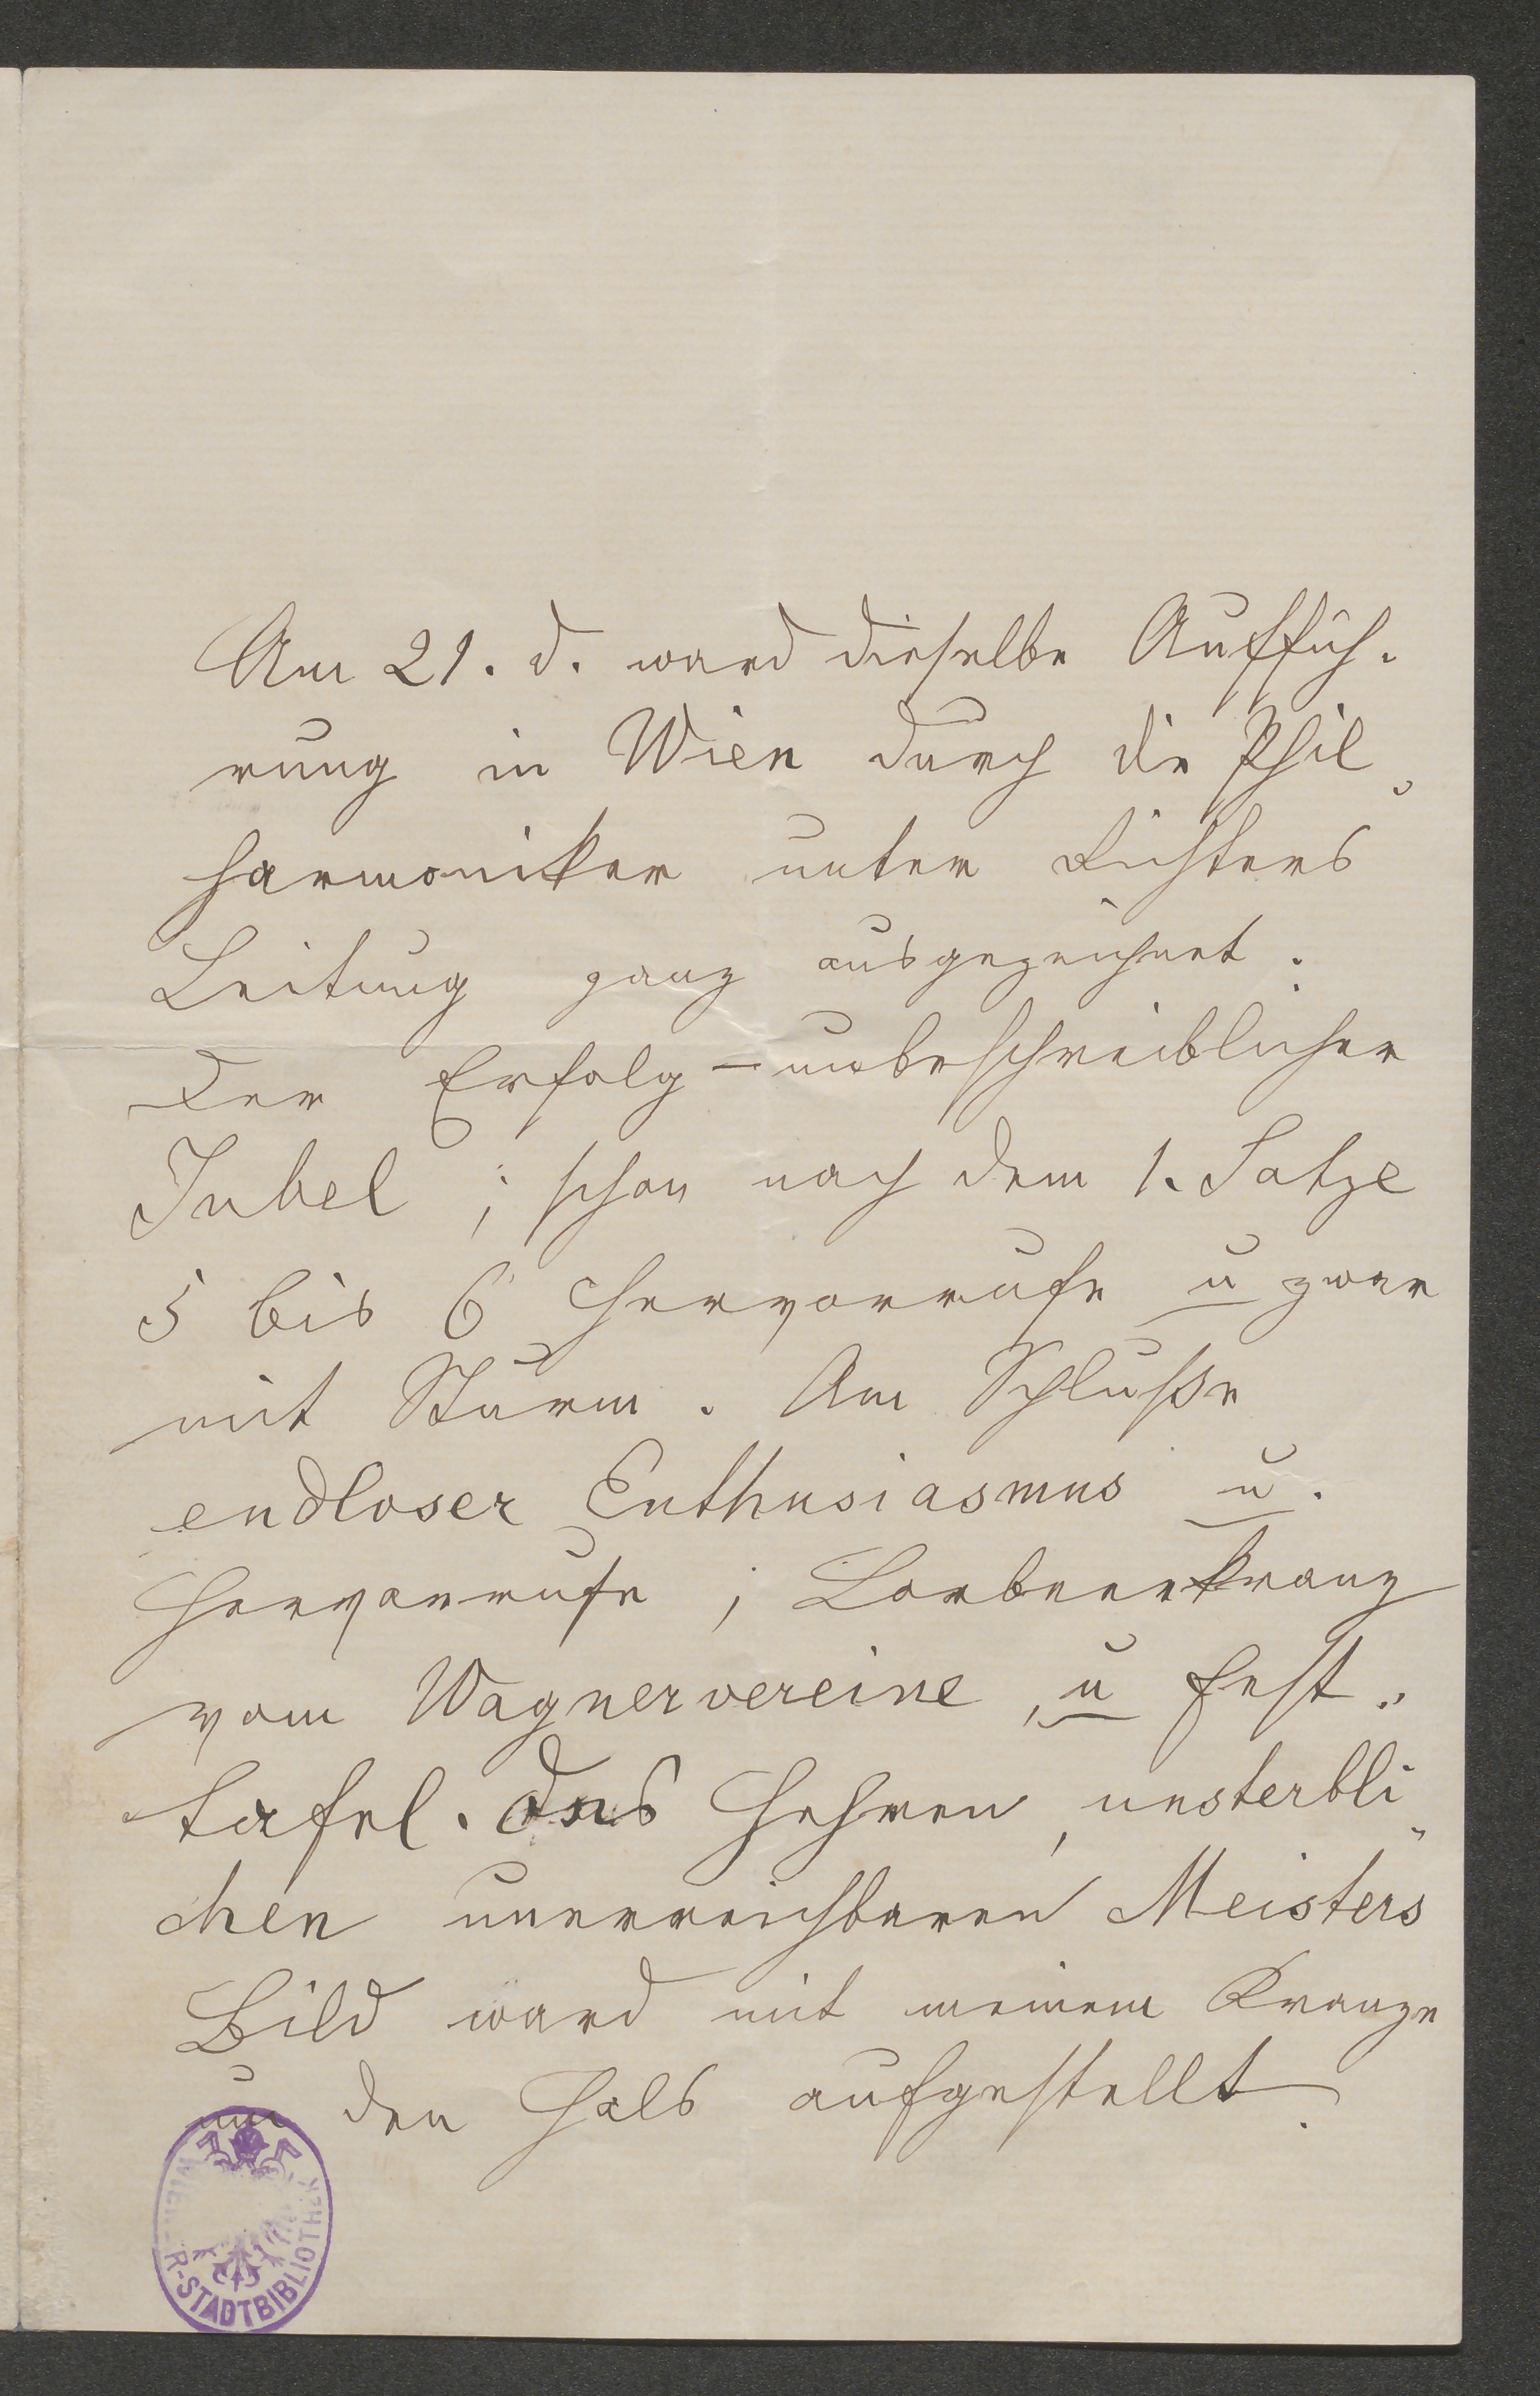 Am 21. d. ward dieselbe Auffüh-
rung in Wien durch die Phil-
harmoniker unter Richters
Leitung ganz ausgezeichnet.
Der Erfolg – unbeschreiblicher
Jubel; schon nach dem 1. Satze
5 bis 6 Hervorrufe u zwar
mit Sturm. Am Schluße
endloser Enthusiasmus u.
Hervorrufe; Lorbeerkranz
vom Wagnervereine, u Fest-
tafel. Des Hehren, unsterbli-
chen unerreichbaren Meisters
Bild ward mit meinem Kranze
um den Hals aufgestellt.
WIENER-STADTBIBLIOTHEK